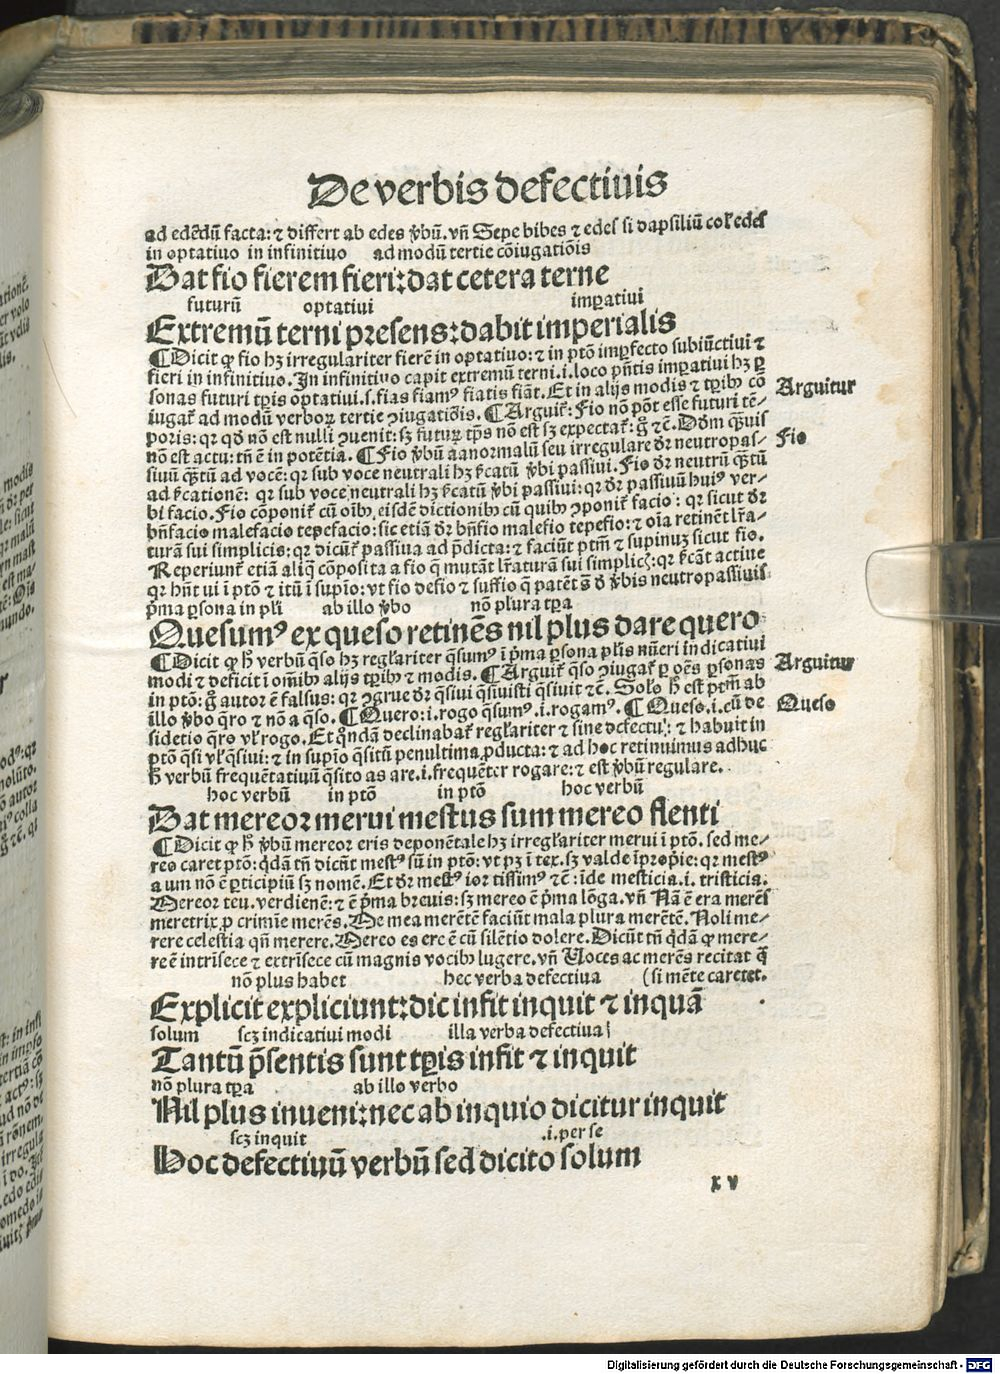 De verbis defectiuis
ad edēdū facta: ⁊ differt ab edes v̄bū. vn̄ Sepe bibes ⁊ edes si dapsiliū
in optatiuo in infinitiuo ad modū tertie cōiugatiōis
Dat fio fierem fieri: dat cetera terne
futurū optatiui imꝑatiui
Extremū terni presens: dabit imperialis
¶Dicit ꝙ fio hꝫ irregulariter fierē in optatiuo: ⁊ in ptō imꝑfecto subiūctiui ⁊
fieri in infinitiuo. In infinitiuo capit extremū terni .i. loco pn̄tis imꝑatiui hꝫ ꝑ
sonas futuri tꝑis optatiui .s. fias fiamꝰ fiatis fiāt. Et in alijs modis ⁊ tꝑibꝫ cō
iugat᷑ ad modū verboꝝ tertie ꝯiugatiōis. ¶Arguit᷑: Fio nō pōt esse futuri tē-
poris: qꝛ qd̄ nō est nulli ꝯuenit: sꝫ futuꝝ tp̄s nō est sꝫ expectat᷑: g̊ ⁊c̄. Dd̄m qꝫuis
nō est actu: tn̄ ē in potētia. ¶Fio v̄bū aanormalū seu irregulare dr̄ neutropas-
siuū qꝫtū ad vocē: qꝛ sub voce neutrali hꝫ sc̄atū v̄bi passiui. Fio dr̄ neutrū qꝫtū
ad sc̄ationē: qꝛ sub voce neutrali hꝫ sc̄atū v̄bi passiui: qꝛ dr̄ passiuū huiꝰ ver-
bi facio. Fio cōponit᷑ cū oībꝫ eisdē dictionibꝫ cū quibꝫ ꝯponit᷑ facio: qꝛ sicut dr̄
bn̄facio malefacio tepefacio: sic etiā dr̄ bn̄fio malefio tepefio: ⁊ oīa retinēt lr̄a-
turā sui simplicis: qꝛ dicūt᷑ passiua ad p̄dicta: ⁊ faciūt ptm̄ ⁊ supinuꝫ sicut fio.
Reperiunt᷑ etiā aliq̄ cōposita a fio q̄ mutāt lr̄aturā sui simplic: qꝛ sc̄ant actiue
qꝛ hn̄t ui ī ptō ⁊ itū ī supīo: vt fio defio ⁊ suffio q̄ patēt s̄ d̄ v̄bis neutropassiuis
p̄ma ꝑsona in pl̄i ab illo v̄bo nō plura tꝑa
Quesumꝰ ex queso retinēs nil plus dare quero
¶Dicit ꝙ h̄ verbū q̄so hꝫ regl̄ariter q̄sumꝰ ī p̄ma ꝑsona pl̄is nūeri indicatiui
modi ⁊ deficit ī om̄ibꝫ alijs tꝑibꝫ ⁊ modis. ¶Arguit᷑ q̄so ꝯiugat᷑ ꝑ oēs ꝑsonas
in ptō: g̊ autor ē falsus: qꝛ ꝯgrue dr̄ q̄siui q̄siuisti q̄siuit ⁊c̄. Solo h̄ est ptm̄ ab
illo v̄bo q̄ro ⁊ nō a q̄so. ¶Quero: .i. rogo q̄sumꝰ .i. rogamꝰ. ¶Queso .i. cū de
sidetio q̄ro vl̄ rogo. Et qn̄dā declinabat᷑ regl̄ariter ⁊ sine defectu: ⁊ habuit in
ptō q̄si vl̄ q̄siui: ⁊ in supīo q̄sitū penultima ꝓducta: ⁊ ad hoc retinuimus adhuc
h̄ verbū frequētatiuū q̄sito as are .i. frequēter rogare: ⁊ est v̄bū regulare.
hoc verbū in ptō in ptō hoc verbū
Dat mereoꝛ merui mestus sum mereo flenti
¶Dicit ꝙ h̄ v̄bū mereor eris deponētale hꝫ irregl̄ariter merui ī ptō. sed me-
reo caret ptō: q̄dā tn̄ dicūt mestꝰ sū in ptō: vt pꝫ ī tex. sꝫ valde īꝓpie: qꝛ mestꝰ
a um nō ē ꝑticipiū sꝫ nomē. Et dr̄ mestꝰ ior tissimꝰ ⁊c̄: īde mesticia .i. tristicia.
Mereor teu. verdienē: ⁊ ē p̄ma breuis: sꝫ mereo ē p̄ma lōga. vn̄ Nā ē era merēs
meretrix ꝓ crimīe merēs. De mea merētē faciūt mala plura merētē. Noli me-
rere celestia qn̄ merere. Mereo es ere ē cū silētio dolere. Dicūt tn̄ q̄dā ꝙ mere-
re ē intrīsece ⁊ extrīsece cū magnis vocibꝫ lugere. vn̄ Uoces ac merēs recitat q̄
nō plus habet hec verba defectiua (si mēte caretet.
Explicit expliciunt: dic infit inquit ⁊ inquā
solum scꝫ indicatiui modi illa verba defectiua
Tantū p̄sentis sunt tꝑis infit ⁊ inquit
nō plura tꝑa ab illo verbo
Nil plus inueni: nec ab inquio dicitur inquit
scꝫ inquit .i. per se
Hoc defectiuū verbū sed dicito solum
x v
Arguitur
Fio
Arguitur
Queso
Digitalisierung gefördert durch die Deutsche Forschungsgemeinschaft - DFG